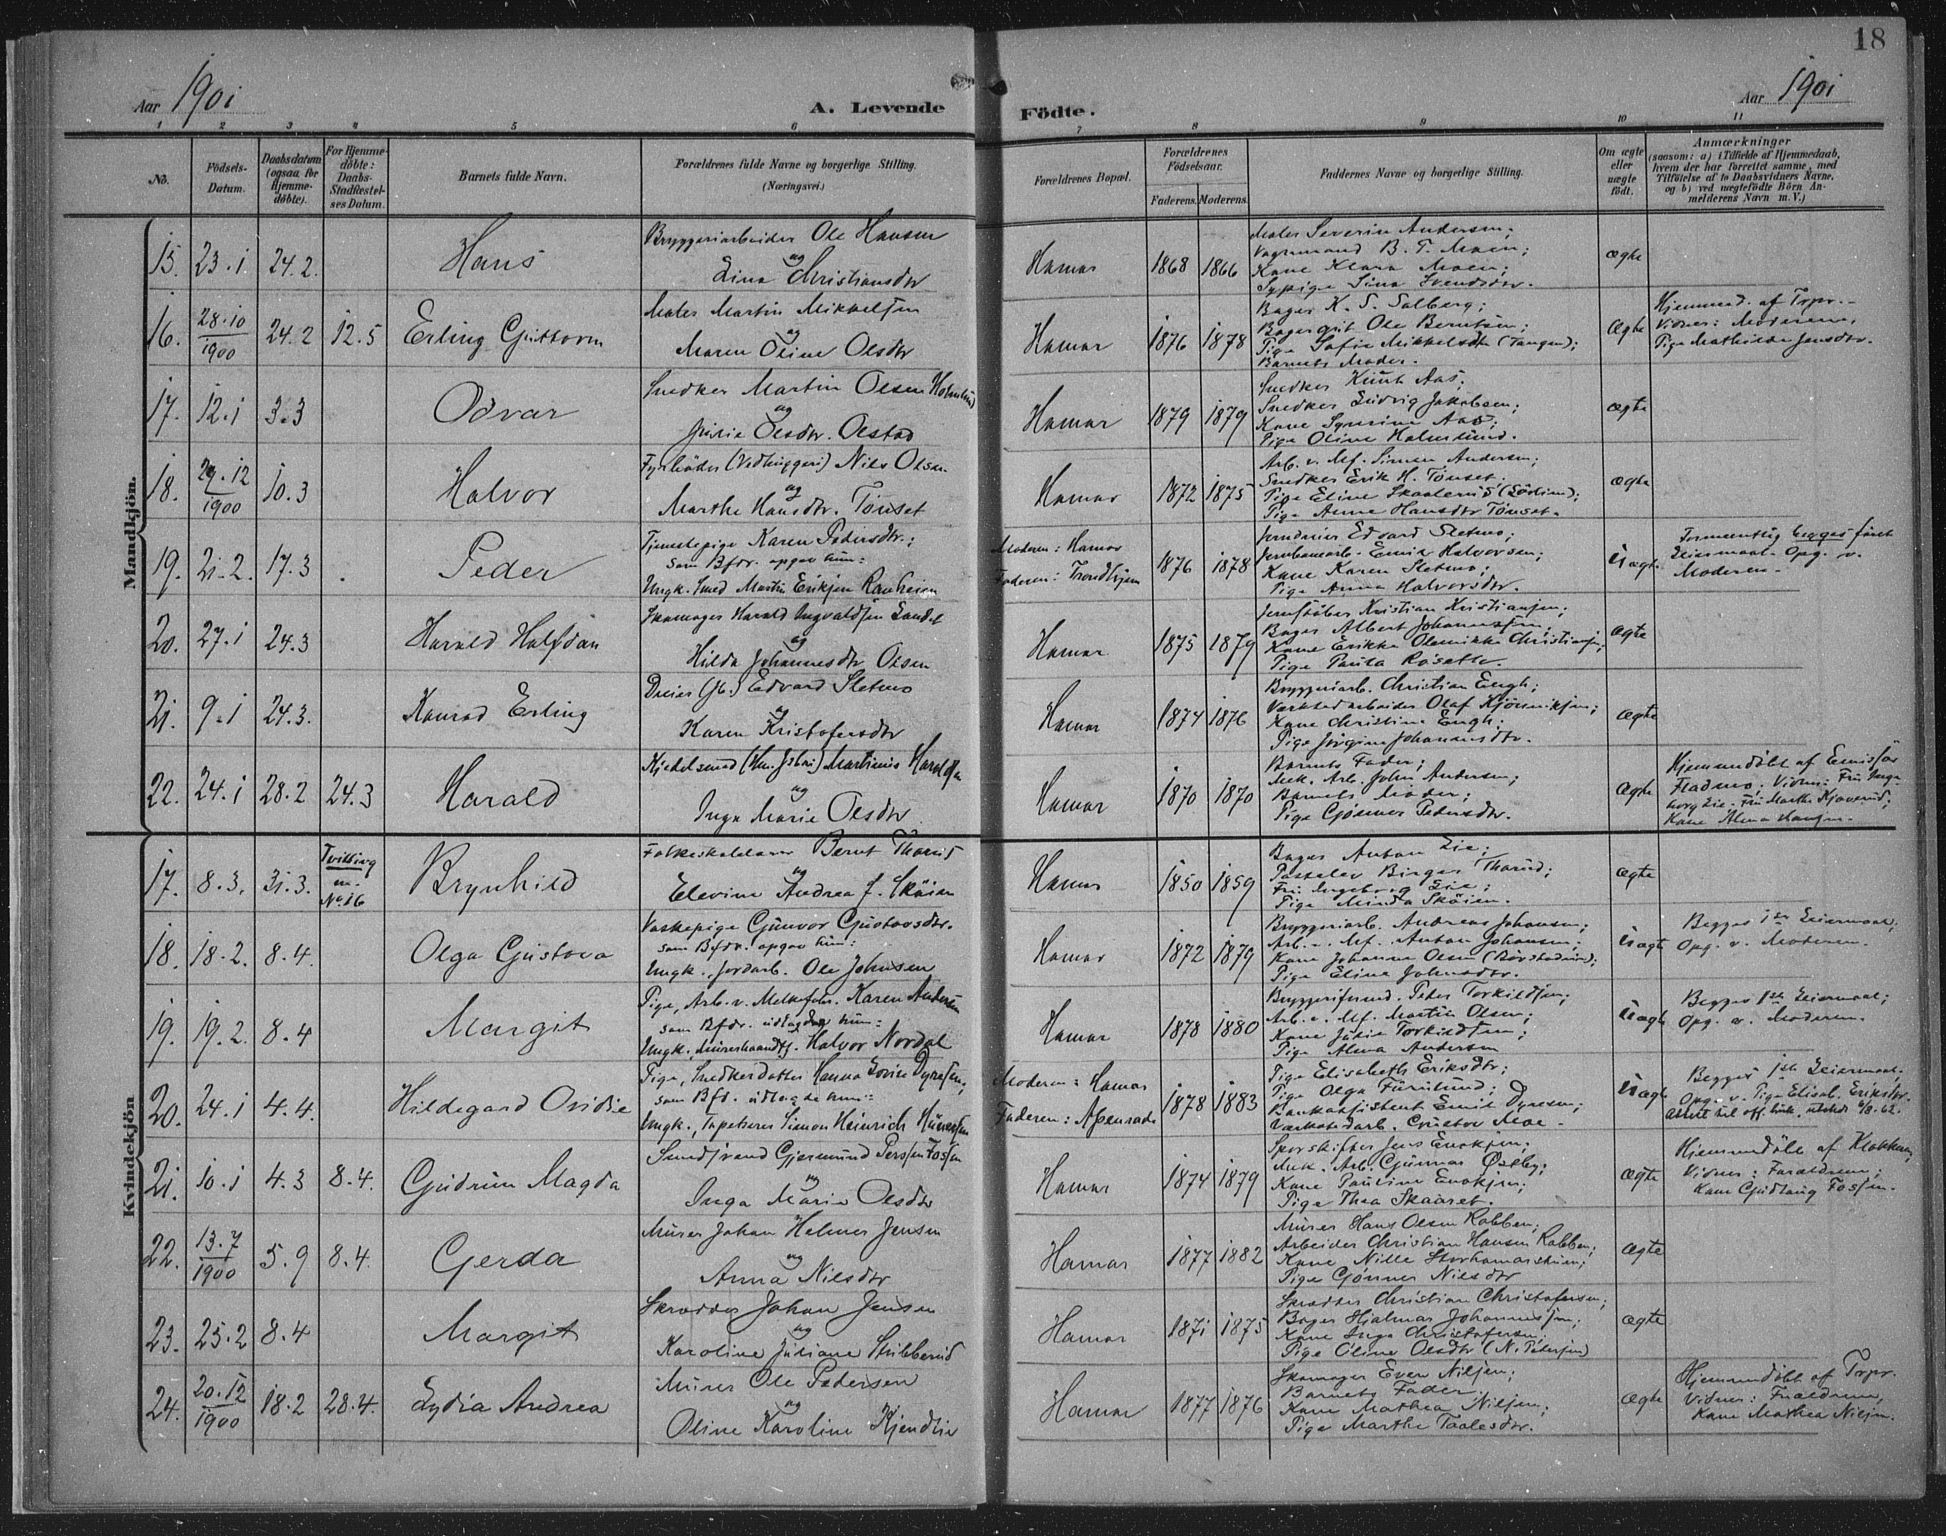 18
Aar 1901
A. Levende
Födte.
Aar 1901
1 2 3 4 5 6 7 8 9 10 11
No.
Födsels-Datum.
Daabsdatum (ogsaa for Hjemmedöbte).
For Hjemmedöbte: Daabs-Stadfestelses Datum.
Barnets fulde Navn.
Forældrenes fulde Navne og borgerlige Stilling.
(Næringsvei.)
Forældrenes Bopæl.
Forældrenes Födselsaar.
Faderens. Moderens.
Faddernes Navne og borgerlige Stilling.
Om ægte eller uægte födt.
Anmærkninger
(saasom: a) i Tilfælde af Hjemmedaab,
hvem der har forrettet samme, med
Tilföielse af to Daabsvidners Navne,
og b) ved uægtefödte Börn An-
melderens Navn m. V.)
Mandkjön.
15. 23.1 24.2. Hans
Bryggeriarbeider Ole Hansen
og
Lina Christiansdtr
Hamar 1868 1866
Maler Severin Andersen;
Vognmand B. T. Moen;
Kone Klara Moen;
Sypige Lina Svendsdtr.
ægte
16. 28.10 1900 24.2 12.5 Erling Guttorm
Maler Martin Mikkelsen
og
Maren Oline Olsdtr
Hamar 1876 1878
Bager K. S. Solberg;
Bagergut Ole Berntsen;
Pige Sofie Mikkelsdtr (Tangen);
Barnets Moder.
ægte
Hjemmed. af Jrpr. -
Vidner: Moderen,
Pige Mathilde Jensdtr.
17. 12.1 3.3 Odvar
Snedker Martin Olsen Holmlund
og
Olsdtr. Olstad
Hamar 1879 1879
Snedker Knut Aas;
Snedker Ludvig Jakobsen;
Kone Syverine Aas;
Pige Oline Holmlund.
ægte
18. 29.12 1900 10.3 Halvor
Fyrböder (Vedhuggeri) Nils Olsen
og
Marthe Hansdtr. Tönset
Hamar 1872 1875
Arb. v. Mf. Simen Andersen;
Snedker Erik H. Tönset;
Pige Eline
Pige Anne Hansdtr Tönset.
ægte
19. 21.2. 17.3 Peder
Tjenestepige Karen Pedersdtr.;
som Bfdr. opgav hun:
Ungk. Smed Martin Eriksen Ranheim
Moderen: Hamar
Faderen: Trondhjem
1876 1878
Jerndreier Edvard Sletmo;
Jernbanearb. Emil Halvorsen;
Kone Karen Sletmo;
Pige Anna Halvorsdtr.
uægte
Formentlig begges först
Leiermaal. Opg. v.
Moderen.
20. 27.1 24.3 Harald Halfdan
Skomager Harald Ingvaldsen Sandet
og
Hilda Johannesdtr Olsen
Hamar 1875 1879
Jernstöber Kristian Kristiansen;
Bager Albert Johannessen;
Kone Erikka Olemikke Christiansen;
Pige Paula Rosette.
ægte
21. 9.1 24.3. Konrad Erling
Dreier (Jb.) Edvard Sletmo
og
Karen Kristofersdtr
Hamar 1874 1876
Bryggeriarb. Christian Engh;
Værkstedarbeider Olaf
Kone Christine Engh;
Pige Jörgine Johannesdtr.
ægte
22. 24.1 28.2 24.3 Harald
Kjedelsmed Martinius Haraldsen
og
Inga Marie Olsdtr
Hamar 1870 1870
Barnets Fader;
Mek. Arb. John Andersen;
Barnets Moder;
Pige Gjönner Pedersdtr.
ægte
Hjemmedöbt af Emissær
Fladmo; Vidner: Fru Inge-
borg Lie. Fru Marthe
Kone Alma
Kvindekjön
17. 8.3. 31.3. Tvilling m. No. 16 Brynhild
Folkeskolelærer Bernt Thorud
og
Elevine Andrea f. Sköien
Hamar 1850 1859
Bager Anton Lie;
Postelev Birger Thorud;
Fru Ingeborg Lie;
Pige Minda Sköien.
ægte
18. 18.2. 8.4. Olga Gustava
Vaskepige Gunvor Gustavsdtr.
som Bfdr. opgav hun:
Ungk. Jordarb. Ole Johnsen
Hamar 1872 1879
Bryggeriarb. Andreas Johansen;
Arb. v. Mf. Anton Johansen;
Kone Johanne Olsen
Pige Eline Johnsdtr.
uægte
Begges 1ste Leiermaal.
Opg. v. Moderen.
19. 19.2. 8.4 Margit
Pige, Arb. v. Melkefabr. Karen Andersen
som Bfdr. udlagde hun:
Ungk., Murerhaandtl. Halvor Nordal
Hamar 1878 1880
Bryggeriformd. Peter Torkildsen;
Arb. v. Mf. Martin Olsen;
Kone Julie Torkildsen;
Pige Alma Andersen
uægte
Begges 1ste Leiermaal;
Opg. v. Moderen.
20. 24.1 4.4. Hildegard Ovidie
Pige, Snedkerdatter Hanna Lovise Dyresen,
som Bfd. udlagde hun:
Ungk., Tapetserer Simon Heinrich
Moderen: Hamar
Faderen: Apenrade
1878 1883
Pige Elisabeth Eriksdtr;
Pige Olga Furulund;
Bankassistent Emil Dyresen;
Værkstedarb. Gustav Moe.
uægte
Begges 1ste Leiermaal.
Opg. v. Pige Elisab. Eriksdtr.
21. 10.1 4.3 8.4. Gudrun Magda
Smedsvend Gjermund Perssen Fossen
og
Inga Marie Olsdtr
Hamar 1874 1879
Sporskifter Jens Enoksen;
Mek. Arb. Gunnar Östby;
Kone Pauline Enoksen;
Pige Thea Skaaret.
ægte
Hjemmedöbt af Klokkeren,
Vidner: Forældrene;
Kone Gudlaug Fossen.
22. 13.7 1900 5.9 8.4. Gerda
Murer Johan Helmer Jensen
og
Anna Nilsdtr
Hamar 1877 1882
Murer Hans Olsen Kobben;
Arbeider Christian Hansen Kobben;
Kone Nille Storhamarstuen;
Pige Gjönner Nilsdtr
ægte
23. 25.2 8.4 Margit
Skrædder Johan Jensen
og
Karoline Juliane Stubberud
Hamar 1871 1875
Skrædder Christian Christofersen;
Bager Hjalmar Johannessen;
Kone Inga Christofersen;
Pige Oline Olsdtr (N. Petersen)
ægte
24. 20.12 1900 18.2 28.4. Lydia Andrea
Murer Ole Pedersen
og
Oline Karoline Kjendlie
Hamar 1877 1876
Skomager Even Nilsen;
Barnets Fader.
Kone Mathea Nilsen;
Pige Marthe Taalesdtr.
ægte
Hjemmedöbt af Jrpr.
Vidner: Forældrene,
Kone Mathea Nilsen.